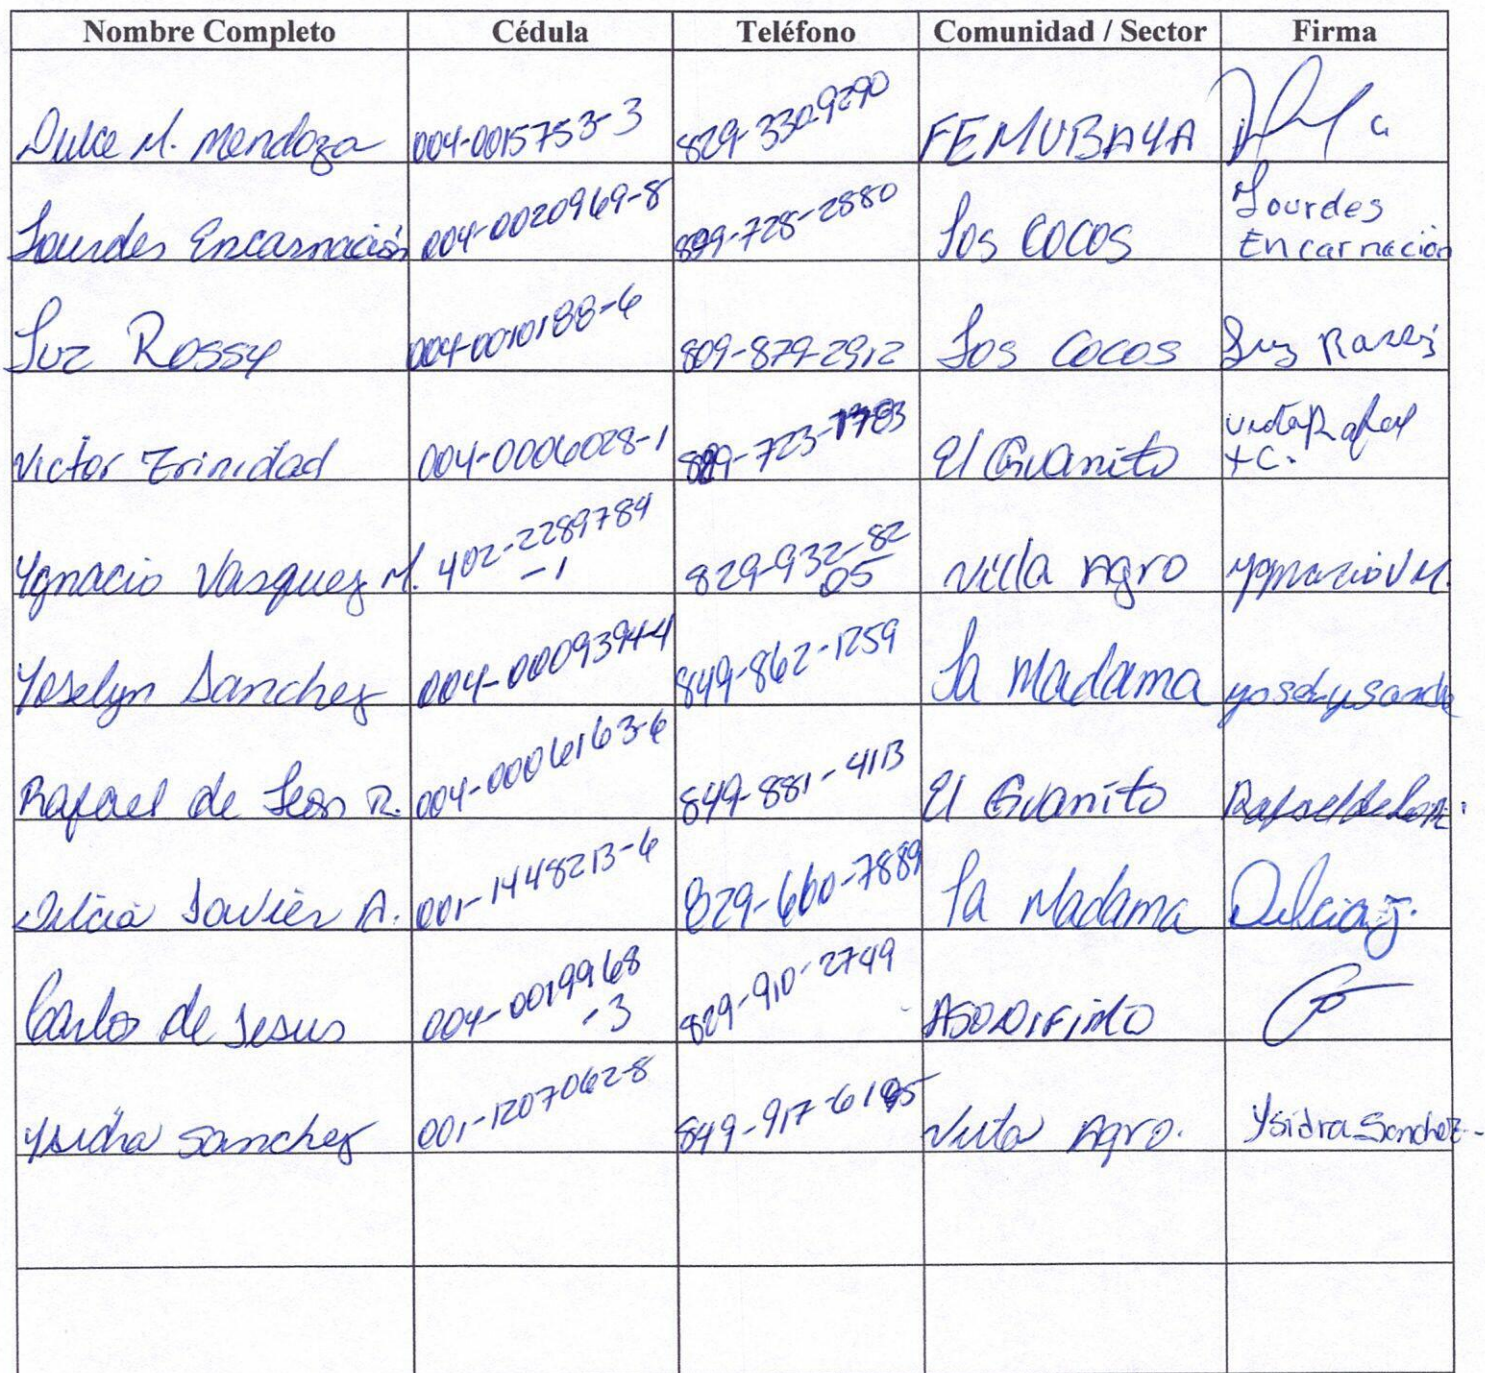 Nombre Completo Cédula Teléfono Comunidad / Sector Firma
Dulce M. Mendoza 004-0015753-3 829-330-9290 FEMUBAYA
Lourdes Encarnación 004-0020969-8 829-728-2880 Los Cocos Lourdes Encarnación
Luz Rossy 004-0010188-6 809-879-2912 Los Cocos Luz
Victor Trinidad 004-0006028-1 El Guanito Rafael T C.
Ygnacio Vasquez M. 402-2289784-1 829-932-8205 Villa Agro Ygnacio V M.
Yoselyn Sanchez 004-0009394-4 849-862-1259 La Madama
Rafael de Leon R. 004-0006163-6 849-881-4113 El Guanito Rafael de Leon R.
Dilcia Javier A. 001-1448213-6 829-660-7889 La Madama Dilcia J.
Carlos de Jesus 004-0019968-3 829-910-2749
Ysidra Sanchez 001-1207062-8 Agro. Ysidra Sanchez